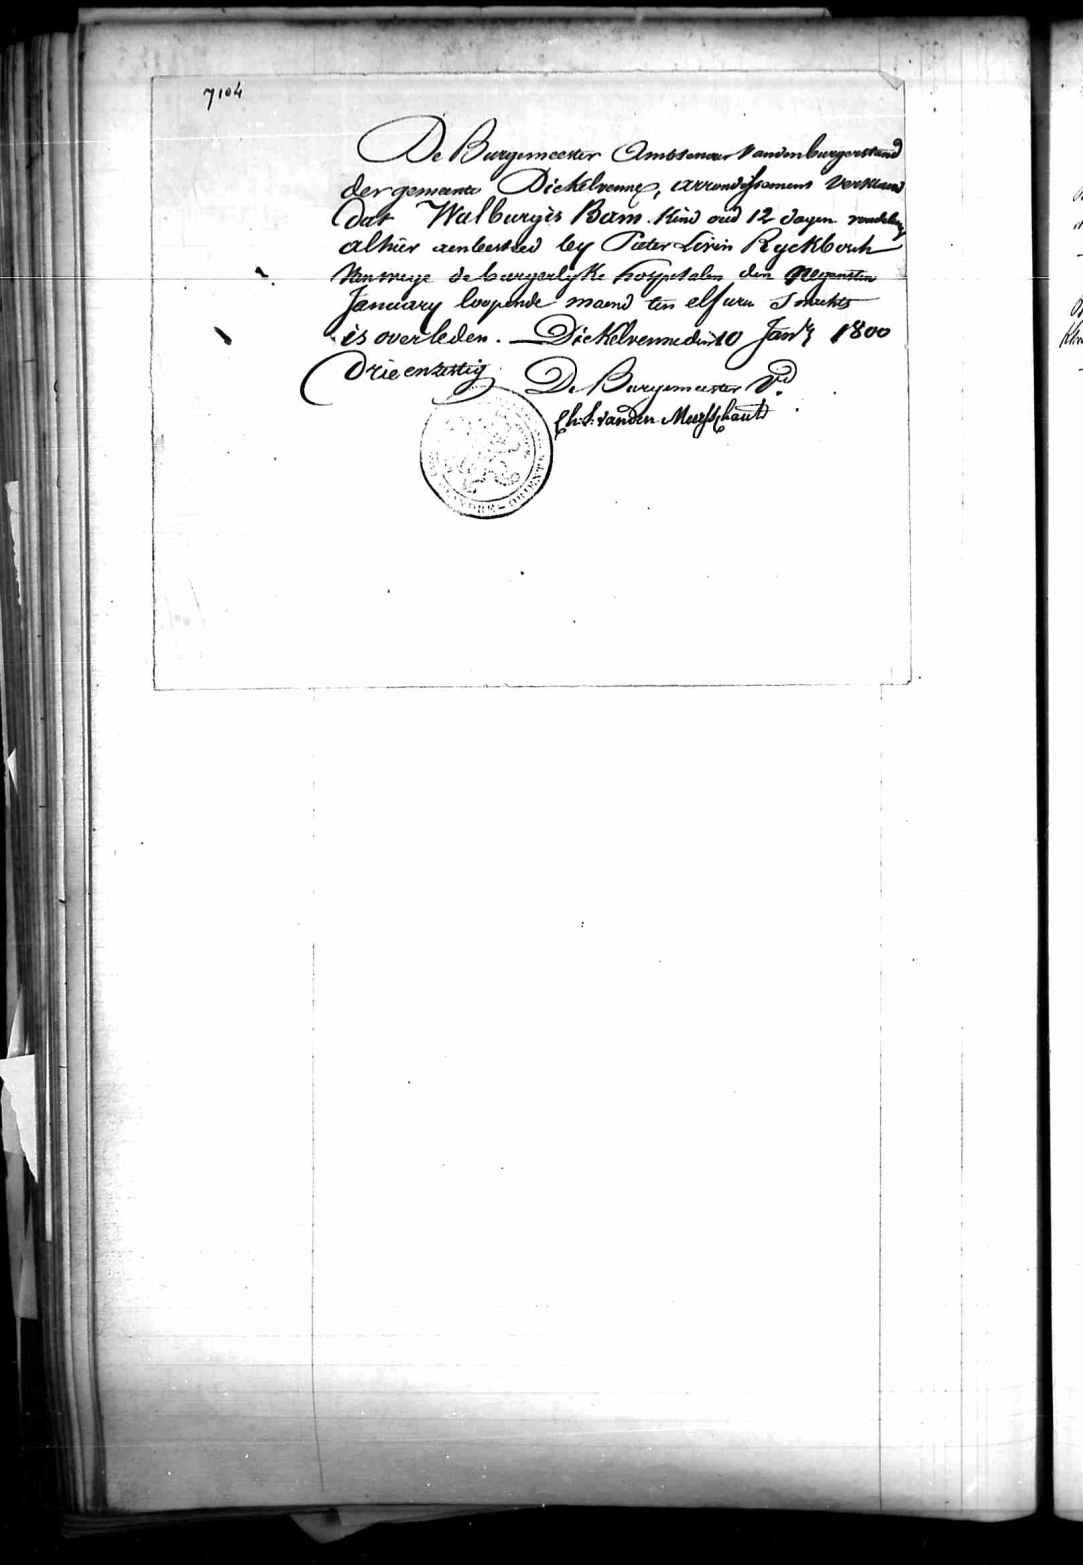 7104
De Burgemeester Ambtenaer vanden burgerstand
der gemeente Dickelvenne, arrondissement verklaerd
dat Walburgis Bam. Kind oud 12 dagen vondeling
alhier aenbesteed by Pieter Livin Ryckbosch
van wege de burgerlyke hospitalen den negensten
January loopende maend ten elf uren s'nachts
is overleden. — Dickelvenne den 10 Jany 1800
drie en zestig
De Burgemeester Vd
Ch. L. vanden Meersschaut
FLANDRE-ORIENTALE